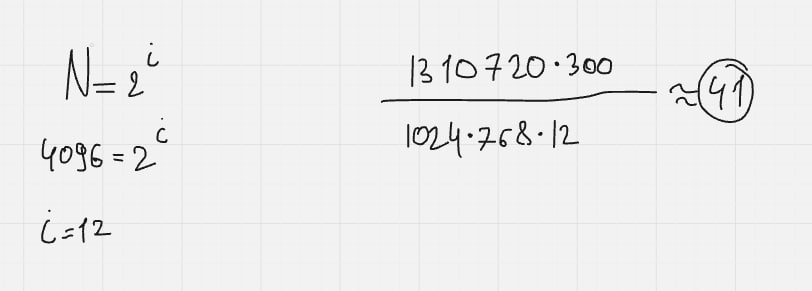 N=2^i
4096=2^i
i=12
1310720·300
1024·768·12
≈41